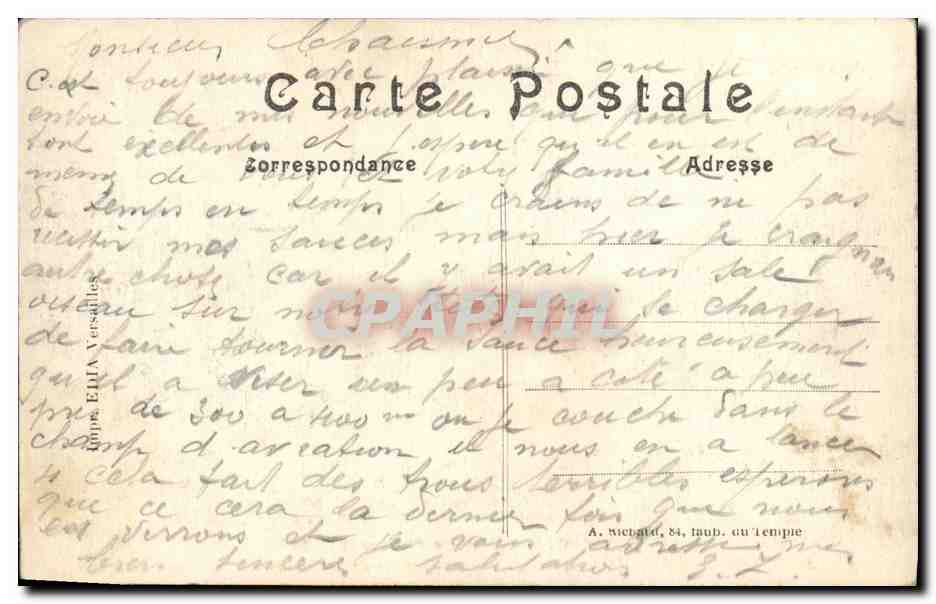 Monsieur
C. est toujours avec plaisir que je
Carte Postale
envoie de mes nouvelles que pour l'instant
sont excellentes et j espere qu'il en est de
Correspondance
Adresse
meme de vous et votre famille
de temps en temps je crains de ne pas
reussir mes sauces mais hier je craignais
autre chose car il y avait un sale
oiseau sur nos têtes qui se charger
de faire tourner la sauce heureusement
qu'il a viser un peu a coté a peu
pres de 300 a 400 m ou je couche dans le
champ d aviation il nous en a lancer
4 cela fait des trous terribles esperons
que ce cera la dernier fois que nous
en verrons et je vous adresse mes
bien sincere salutation
CPAPHIL
Impr. EDIA Versailles
A. Richard, 84, faub. du Temple